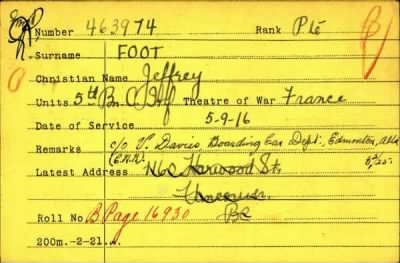 Number 463974 Rank Pte
Surname FOOT
Christian Name Jeffrey
Units 5th Bn. C Theatre of War France
Date of Service 5-9-16
Remarks c/o V. Davies, Boarding Car Dept., Edmonton, Alta
(C.N.R.)
Latest Address Harwood St.
Vancouver.
BC
Roll No. B Page 16930
200m.-2-21.